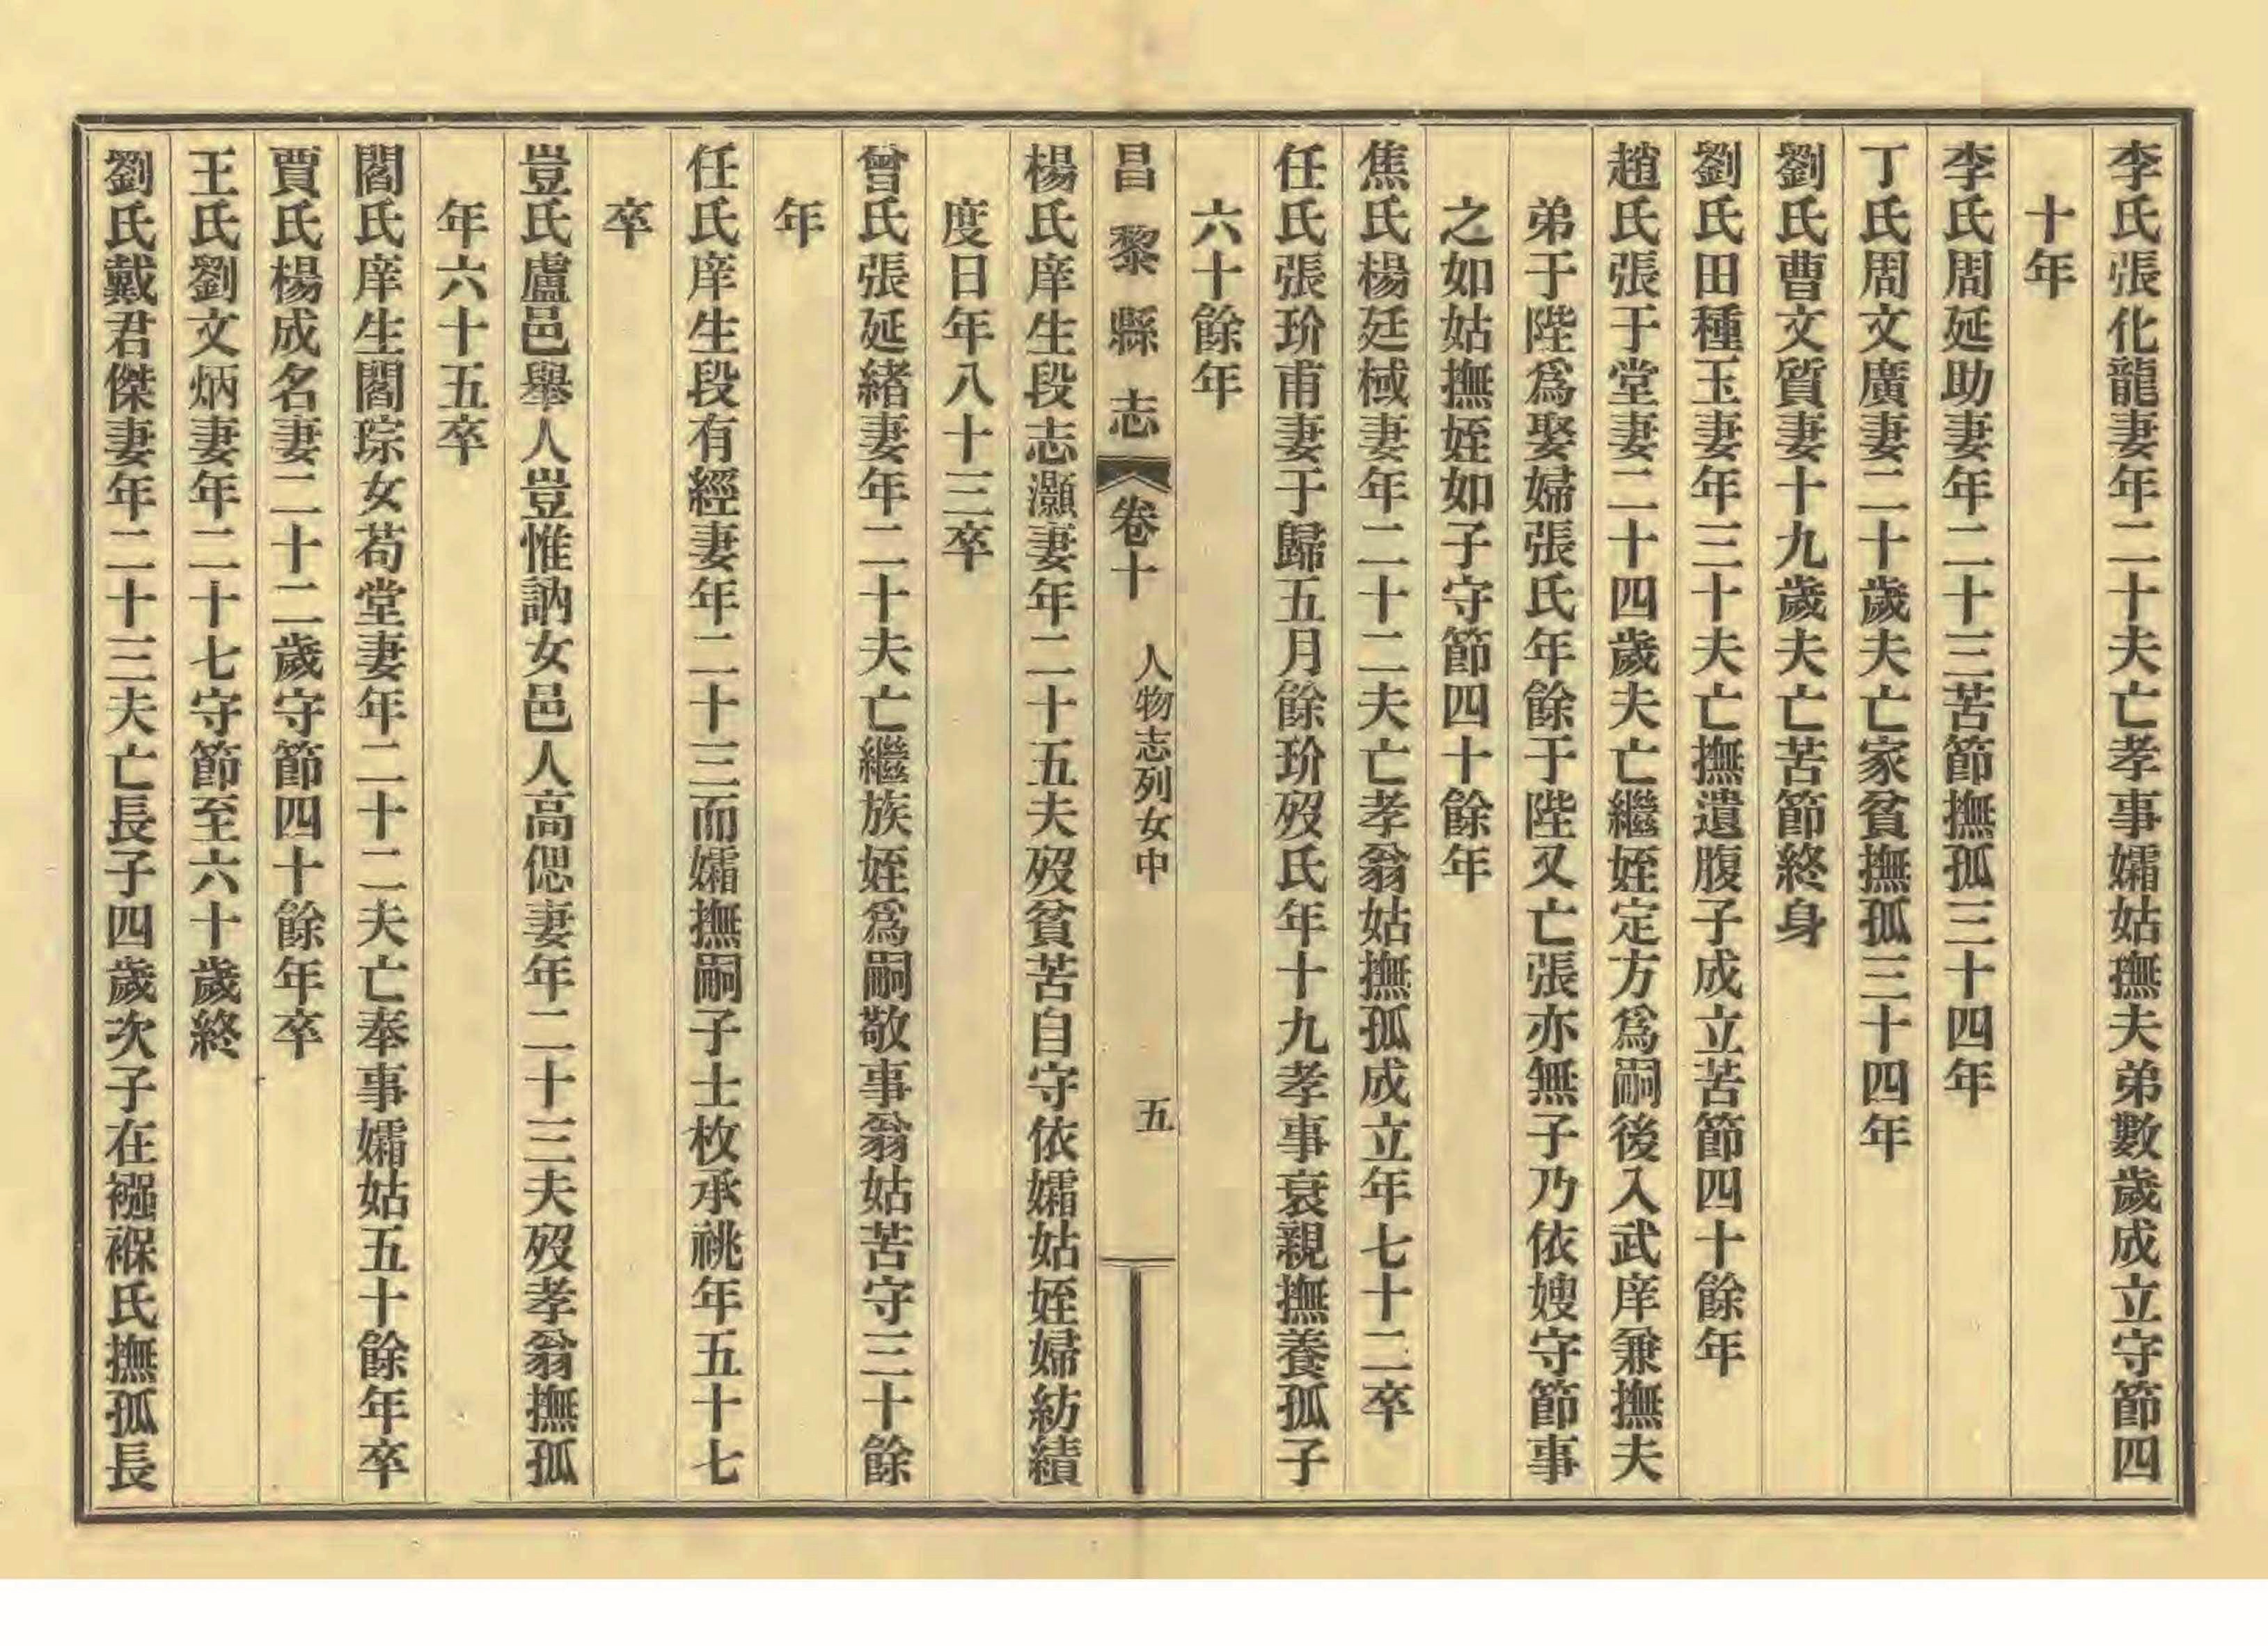 李氏張化龍妻年二十夫亡孝事孀姑撫夫弟數歲成立守節四
十年
李氏周延助妻年二十三苦節撫孤三十四年
丁氏周文廣妻二十歲夫亡家貧撫孤三十四年
劉氏曹文質妻十九歲夫亡苦節終身
劉氏田種玉妻年三十夫亡撫遺腹子成立苦節四十餘年
趙氏張于堂妻二十四歲夫亡繼姪定方爲嗣後入武庠兼撫夫
弟于陛爲娶婦張氏年餘于陛又亡張亦無子乃依嫂守節事
之如姑撫姪如子守節四十餘年
焦氏楊廷棫妻年二十二夫亡孝翁姑撫孤成立年七十二卒
任氏張玠甫妻于歸五月餘玠歿氏年十九孝事衰親撫養孤子
六十餘年
昌黎縣志 卷十 人物志列女中 五
楊氏庠生段志灝妻年二十五夫歿貧苦自守依孀姑姪婦紡績
度日年八十三卒
曾氏張延緒妻年二十夫亡繼族姪爲嗣敬事翁姑苦守三十餘
年
任氏庠生段有經妻年二十三而孀撫嗣子士枚承祧年五十七
卒
豈氏盧邑舉人豈惟訥女邑人高偲妻年二十三夫歿孝翁撫孤
年六十五卒
閻氏庠生閻琮女荀堂妻年二十二夫亡奉事孀姑五十餘年卒
賈氏楊成名妻二十二歲守節四十餘年卒
王氏劉文炳妻年二十七守節至六十歲終
劉氏戴君傑妻年二十三夫亡長子四歲次子在襁褓氏撫孤長